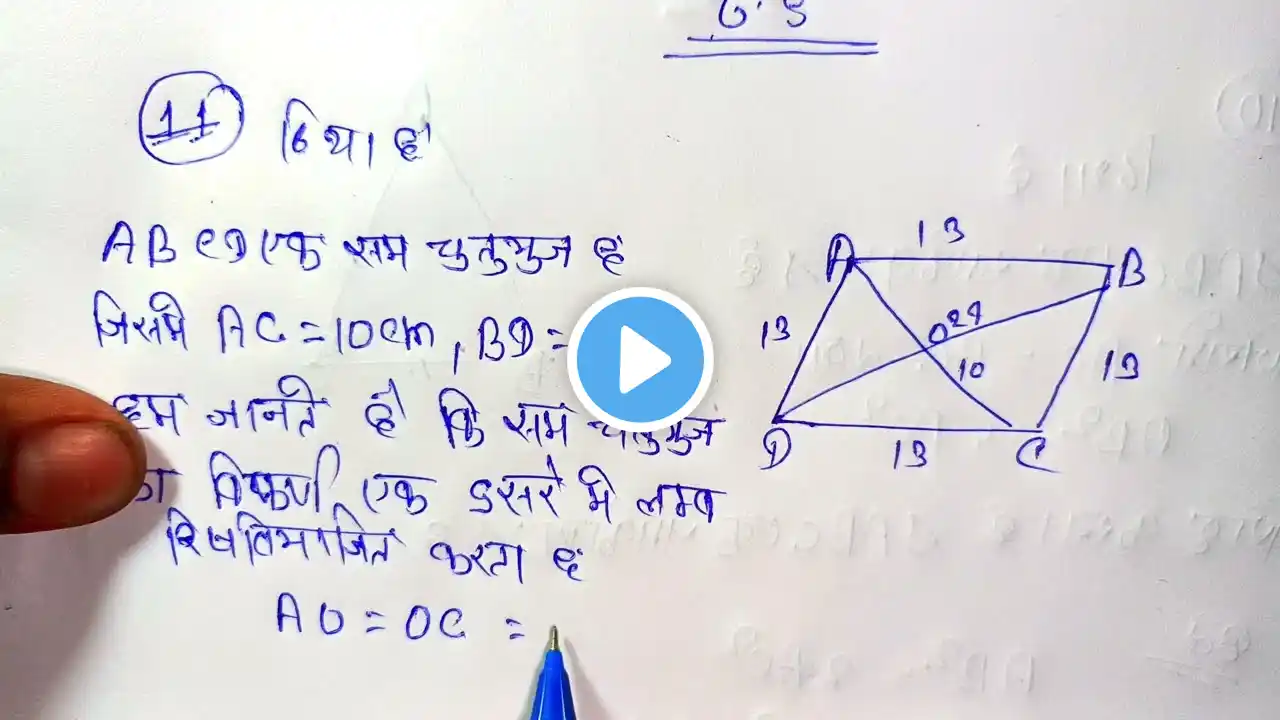 6.5
11 दिया है
ABCD एक सम चुतुभुज है
जिसमे AC = 10cm, BD =
हम जानते है कि सम चतुभुज
का विकर्ण एक दुसरे मे लम्ब
करता है
AO = OC =
13
A B
13 O 24 13
10
D 13 C